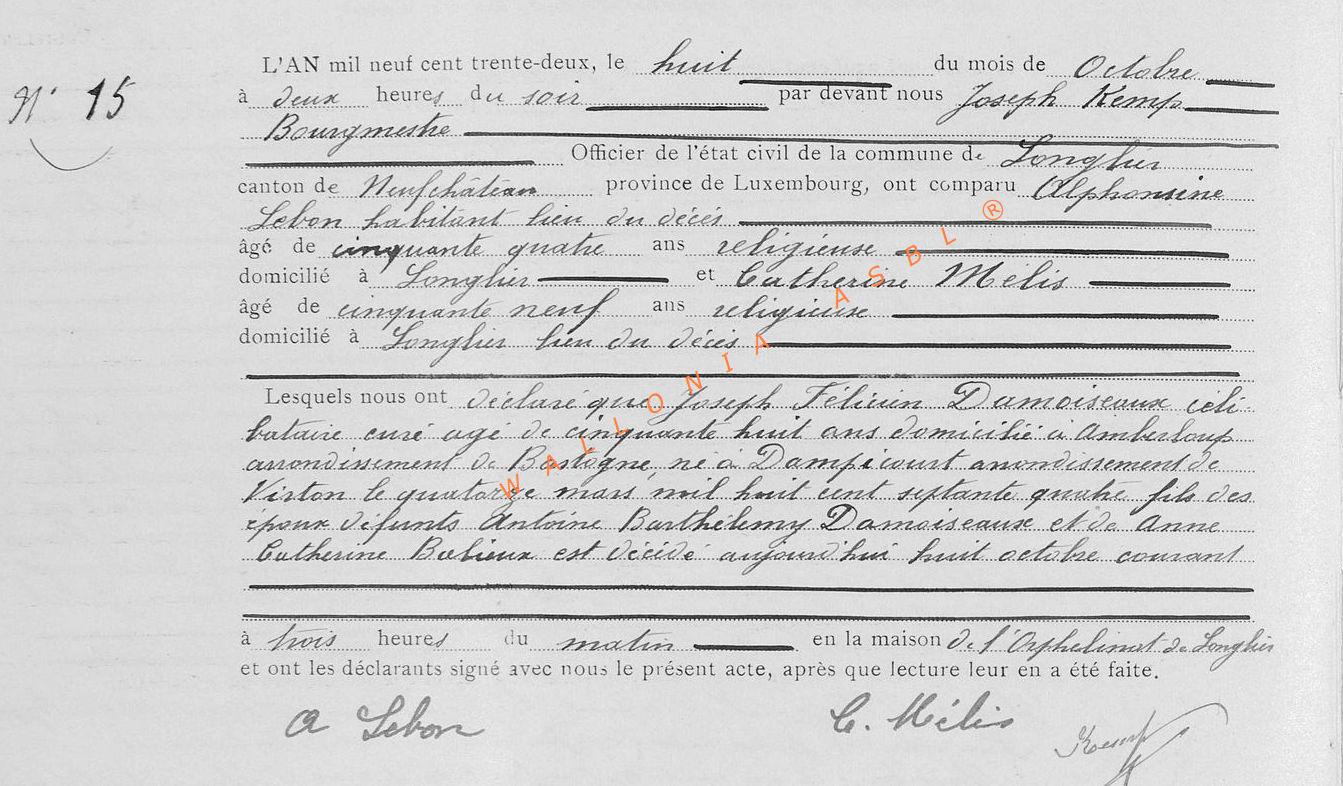 L'AN mil neuf cent trente-deux, le huit du mois de Octobre
N° 15
à deux heures du soir par devant nous Joseph Kemp
Bourgmestre
Officier de l'état civil de la commune de Longlier
canton de Neufchâteau province de Luxembourg, ont comparu Alphonsine
Lebon habitant lieu du décés
âgé de cinquante quatre ans religieuse
domicilié à Longlier et Catherine Mélis
âgé de cinquante neuf ans religieuse
domicilié à Longlier lieu du décés
Lesquels nous ont déclaré que Joseph Félicien Damoiseaux céli-
bataire curé agé de cinquante huit ans domicilié à Amberloup
arrondissement de Bastogne, né à Dampicourt arrondissement de
Virton le quatorze mars mil huit cent septante quatre fils des
époux défunts Antoine Barthélemy Damoiseaux et de Anne
Catherine est décédé aujourd'hui huit octobre courant
à trois heures du matin en la maison de l'Orphelinat de Longlier
et ont les déclarants signé avec nous le présent acte, après que lecture leur en a été faite.
A Lebon C. Mélis Kemp
WALLONIA ASBL ®